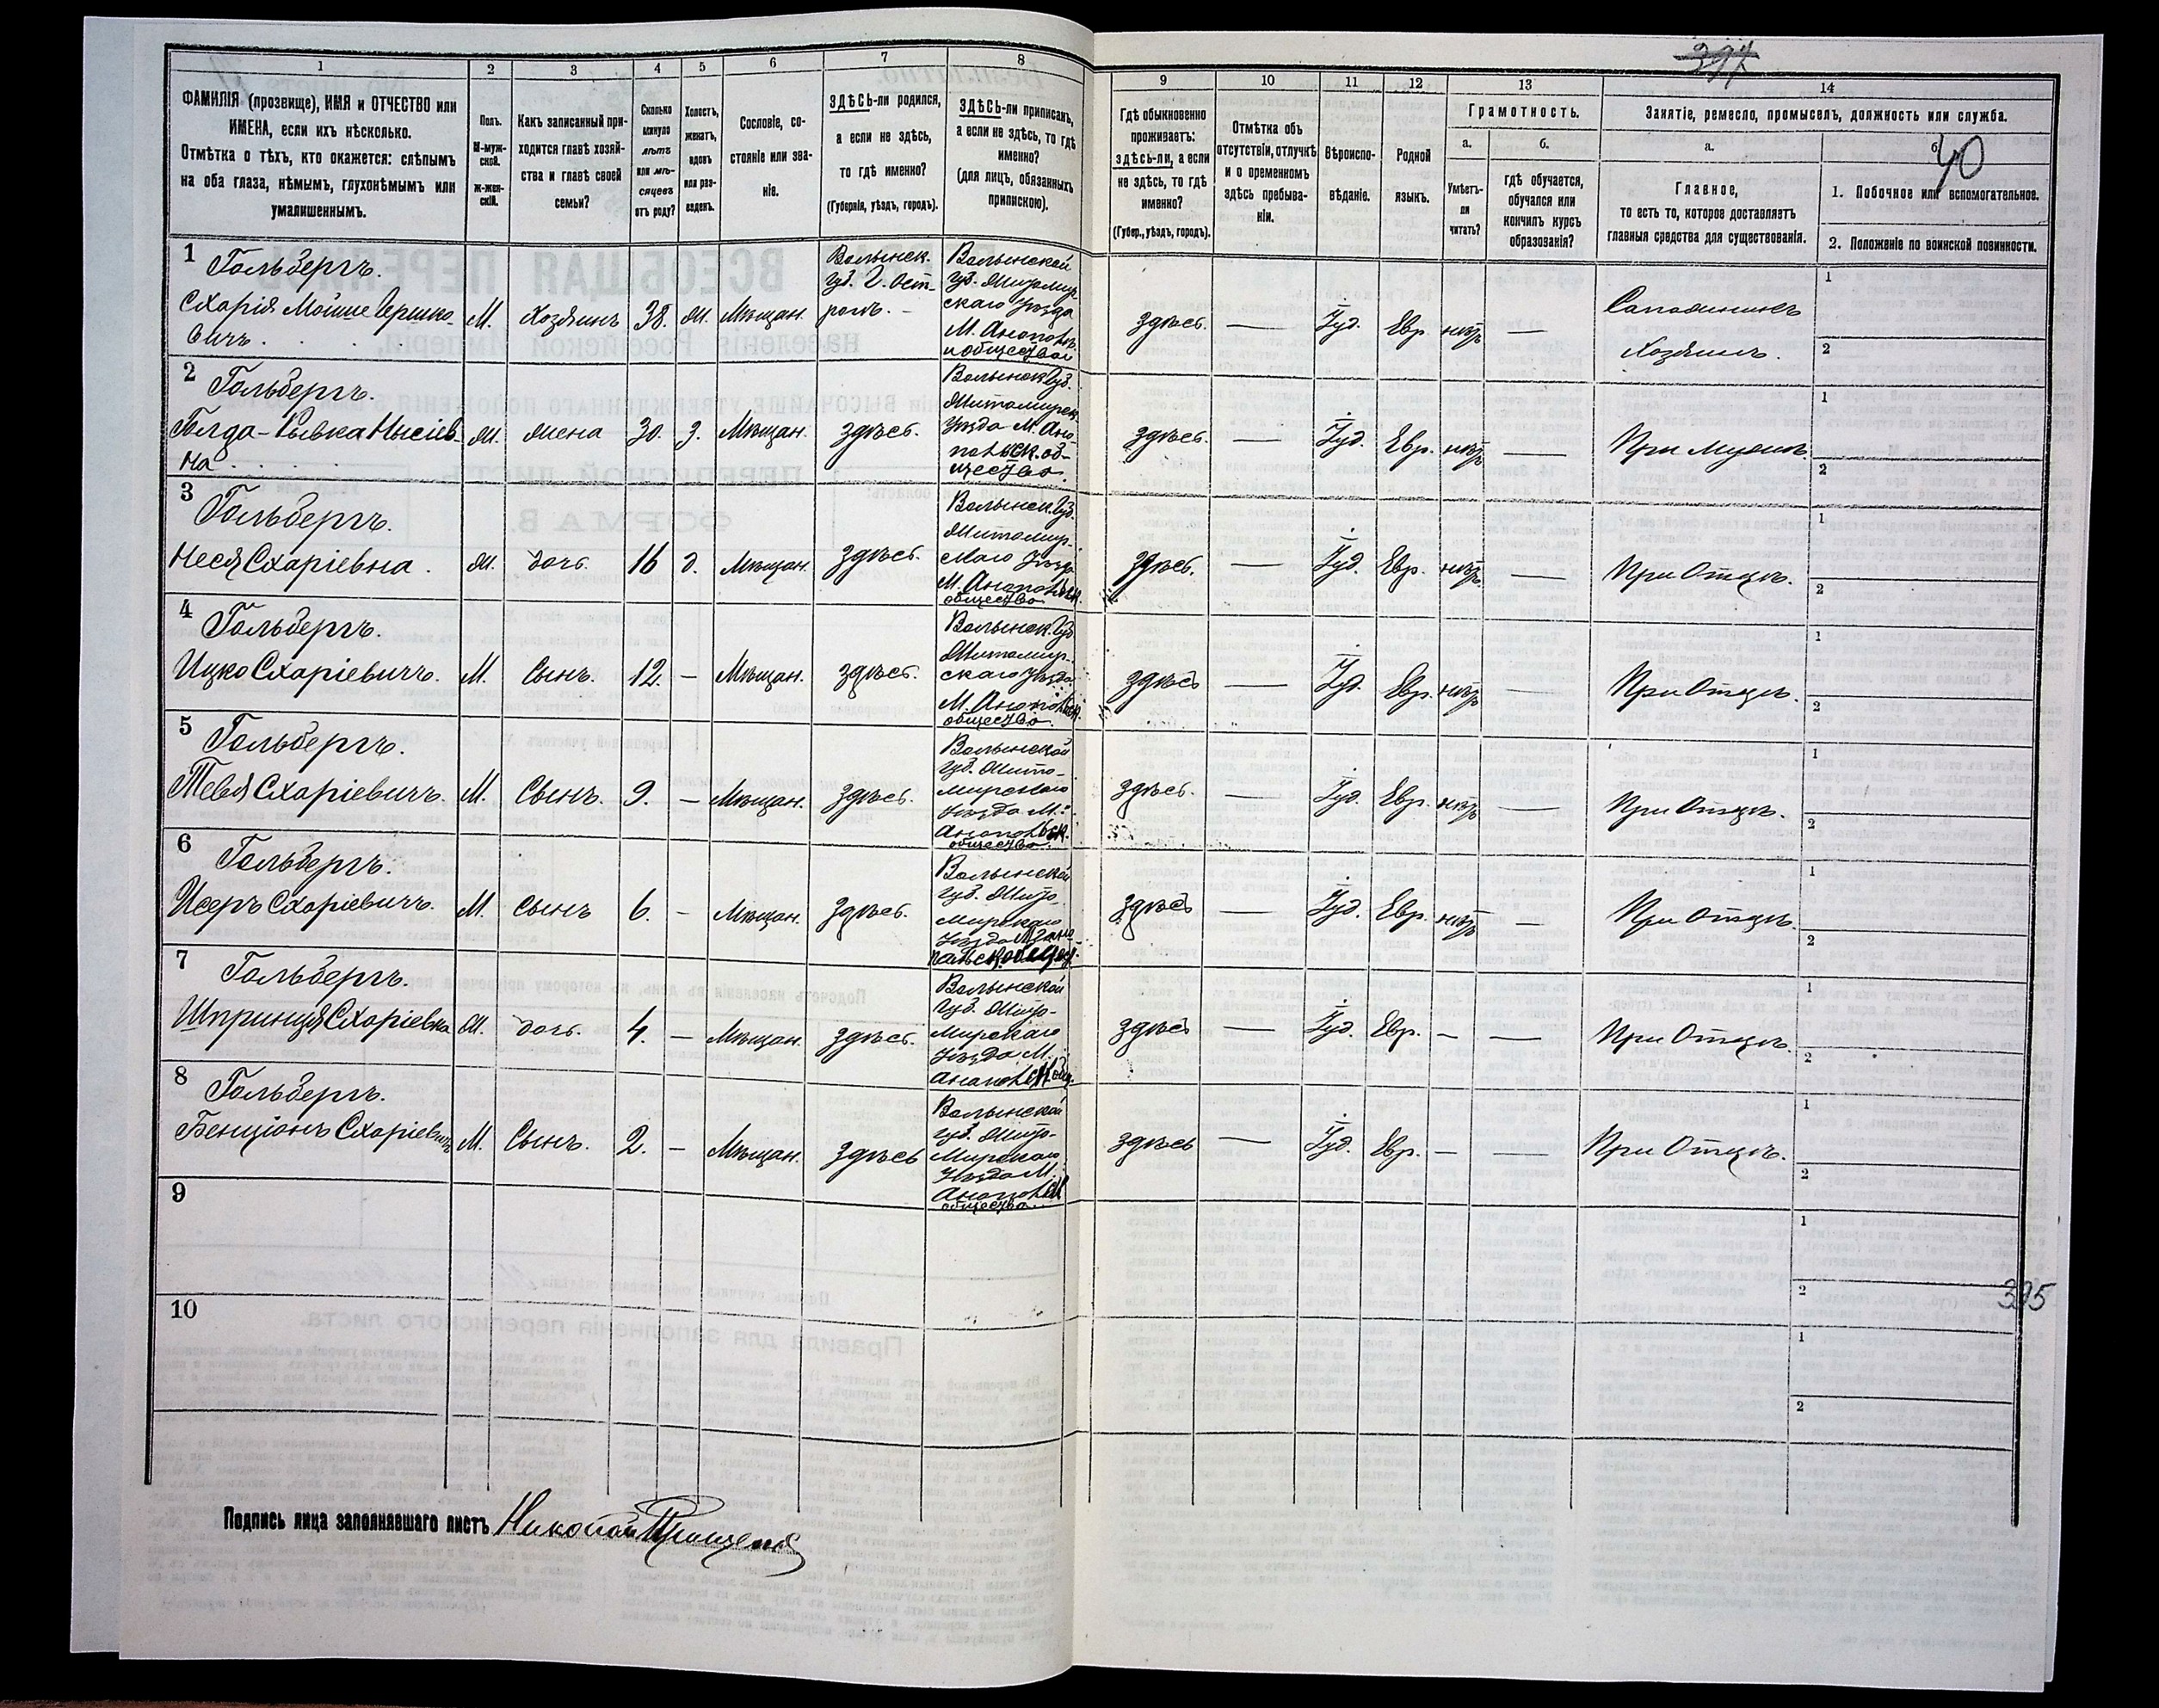 397
40
1
2
3
4
5
6
7
8
9
10
11
12
13
14
ФАМИЛІЯ (прозвище), ИМЯ и ОТЧЕСТВО или
ИМЕНА, если ихъ нѣсколько.
Отмѣтка о тѣхъ, кто окажется: слѣпымъ
на оба глаза, нѣмымъ, глухонѣмымъ или
умалишеннымъ.
Полъ.
М-муж-
ской.
ж-жен-
скій.
Какъ записанный при-
ходится главѣ хозяй-
ства и главѣ своей
семьи?
Сколько
минуло
лѣтъ
или мѣ-
сяцевъ
отъ роду?
Холостъ,
женатъ,
вдовъ
или раз-
веденъ.
Сословіе, со-
стояніе или зва-
ніе.
ЗДѢСЬ-ли родился,
а если не здѣсь,
то гдѣ именно?
(Губернія, уѣздъ, городъ).
ЗДѢСЬ-ли приписанъ,
а если не здѣсь, то гдѣ
именно?
(для лицъ, обязанныхъ
припискою).
Гдѣ обыкновенно
проживаетъ:
здѣсь-ли, а если
не здѣсь, то гдѣ
именно?
(Губер., уѣздъ, городъ).
Отмѣтка объ
отсутствіи, отлучкѣ
и о временномъ
здѣсь пребыва-
ніи.
Вѣроиспо-
вѣданіе.
Родной
языкъ.
Грамотность.
а.
Умѣетъ-
ли
читать?
б.
гдѣ обучается,
обучался или
кончилъ курсъ
образованія?
Занятіе, ремесло, промыселъ, должность или служба.
а.
Главное,
то есть то, которое доставляетъ
главныя средства для существованія.
б.
1. Побочное или вспомогательное.
2. Положеніе по воинской повинности.
1
Гольбергъ.
Схарія Мойше Гершко-
вичъ.
М.
Хозяинъ
38.
ж.
Мѣщан.
Волынск.
губ. Г. Ост-
рогъ.
Волынской
губ. Житомир
скаго уѣзда
М. Анополь.
общество
здѣсь.
—
Іуд.
Евр.
нѣтъ
—
Хозяинъ.
1
2
2
Гольбергъ.
Ривка
на
ж.
жена
30.
з.
Мѣщан.
здѣсь.
Волынск. губ.
Житомирск.
уѣзда М. Ано-
польск. об-
щество.
здѣсь.
—
Іуд.
Евр.
нѣтъ
—
При Мужѣ
1
2
3
Гольбергъ.
Неся Схаріевна.
ж.
дочь.
16
д.
Мѣщан.
здѣсь.
Волынск. губ.
Житомир-
скаго уѣзда
М. Анопольск.
общество
здѣсь.
—
Іуд.
Евр.
нѣтъ
—
При Отцѣ.
1
2
4
Гольбергъ.
Ицко Схаріевичъ.
М.
Сынъ.
12.
—
Мѣщан.
здѣсь.
Волынск. губ
Житомир-
скаго уѣзда
М. Анопольск.
общество.
здѣсь
—
Іуд.
Евр.
нѣтъ
—
При Отцѣ.
1
2
5
Гольбергъ.
Тевя Схаріевичъ.
М.
Сынъ.
9.
—
Мѣщан.
здѣсь.
Волынской
губ. Жито-
мирскаго
уѣзда М.
Анопольск.
общество.
здѣсь.
—
Іуд.
Евр.
нѣтъ
—
При Отцѣ.
1
2
6
Гольбергъ.
Исеръ Схаріевичъ.
М.
Сынъ
6.
—
Мѣщан.
здѣсь.
Волынской
губ. Жито
мирскаго
уѣзда М. Ано-
польск. общест.
здѣсь
—
Іуд.
Евр.
нѣтъ
—
При Отцѣ.
1
2
7
Гольбергъ.
Шпринця Схаріевна
ж.
дочь.
4.
—
Мѣщан.
здѣсь.
Волынской
губ. Жито-
мирскаго
уѣзда М.
Анопольск. общ.
здѣсь
—
Іуд.
Евр.
—
—
При Отцѣ.
1
2
8
Гольбергъ.
Бенціонъ Схаріевичъ
М.
Сынъ.
2.
—
Мѣщан.
здѣсь
Волынской
губ. Жито-
мирскаго
уѣзда М.
Анопольск
общество.
здѣсь
—
Іуд.
Евр.
—
—
При Отцѣ.
1
2
9
1
2
395
10
1
2
Подпись лица заполнявшаго листъ Николай